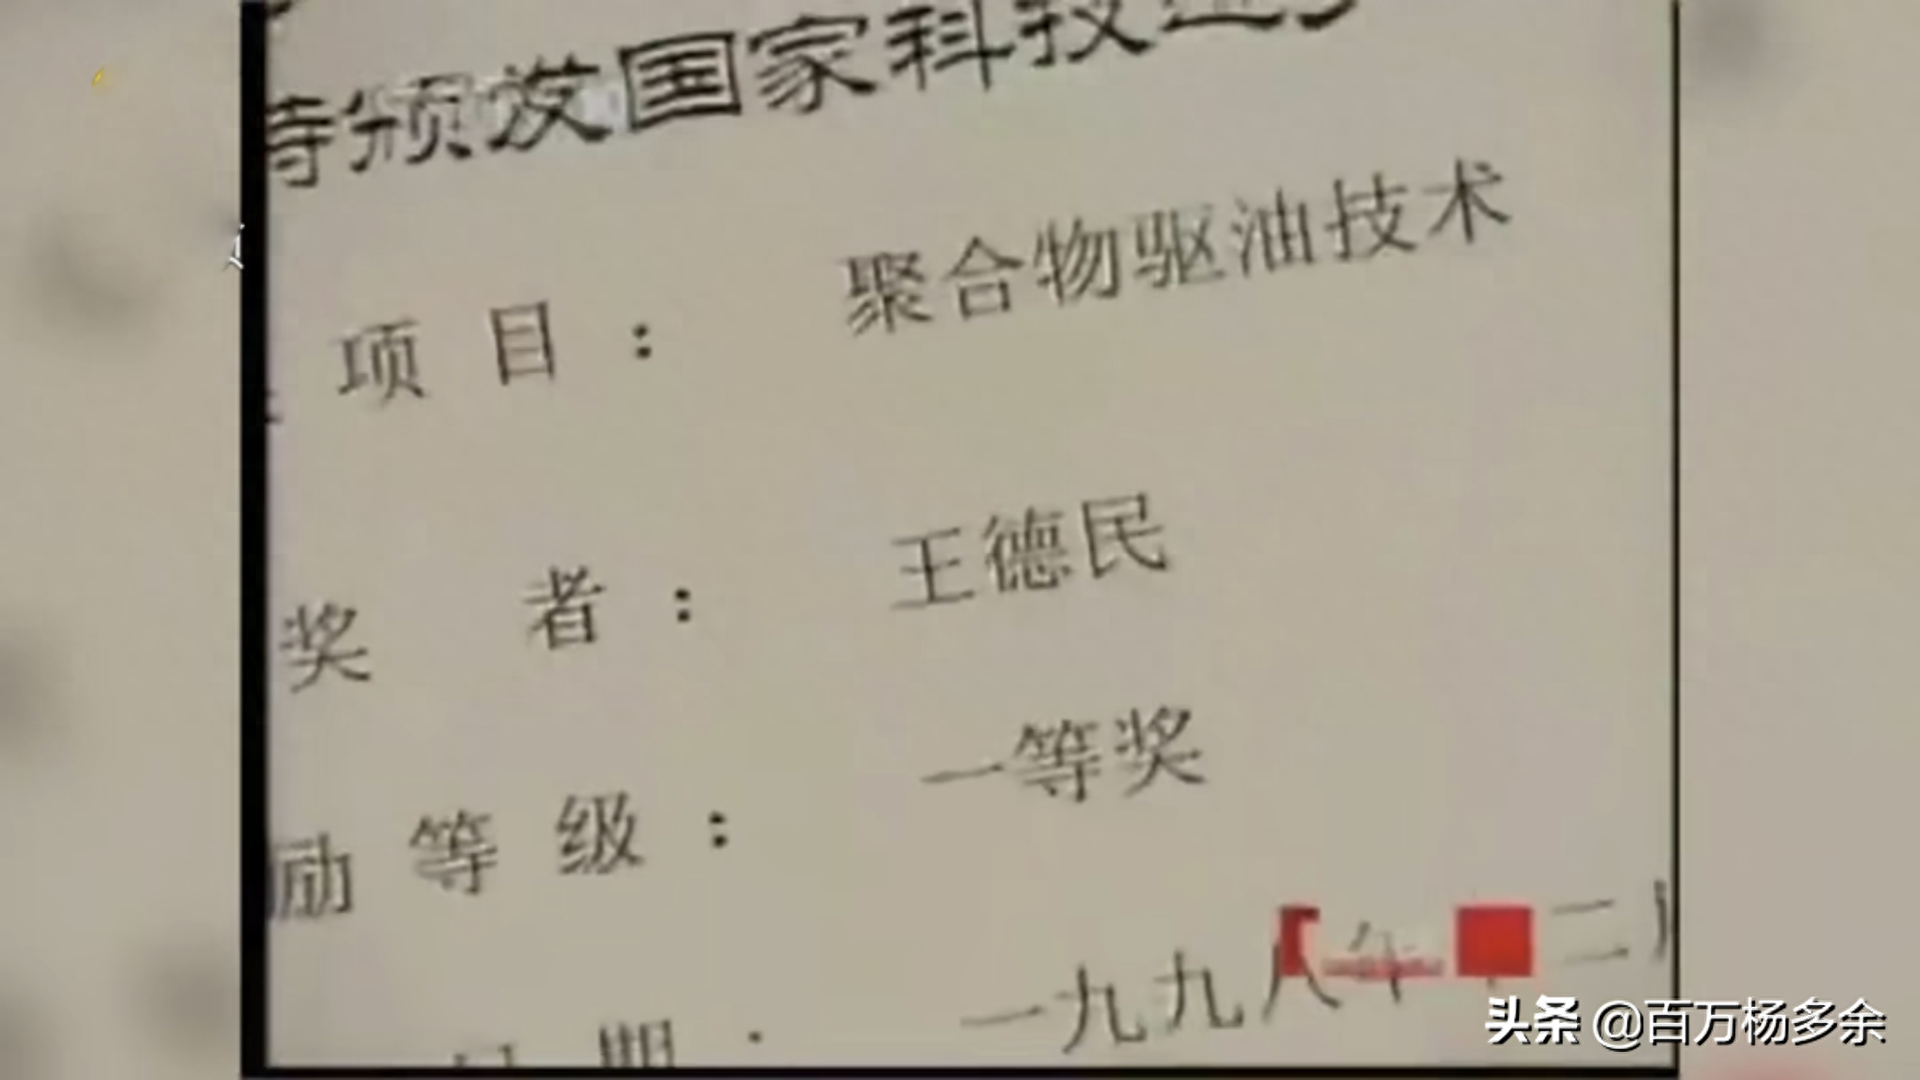 特颁发国家科技进
项目： 聚合物驱油技术
奖 者： 王德民
励等级： 一等奖
日期： 一九九八年十二月
头条 @百万杨多余